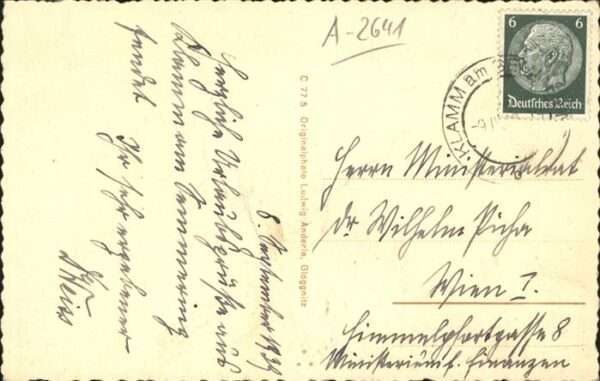 A-2641
6 6
Deutsches Reich
KLAMM am
8. September 1939
Herzliche Urlaubsgrüße aus
Klamm am Semmering
sendet
Ihr sehr ergebener
C 77 5 Originalphoto Ludwig Anderle, Gloggnitz
Herrn Ministerialrat
Dr Wilhelm Picha
Wien I.
Himmelpfortgasse 8
Ministerium f. Finanzen